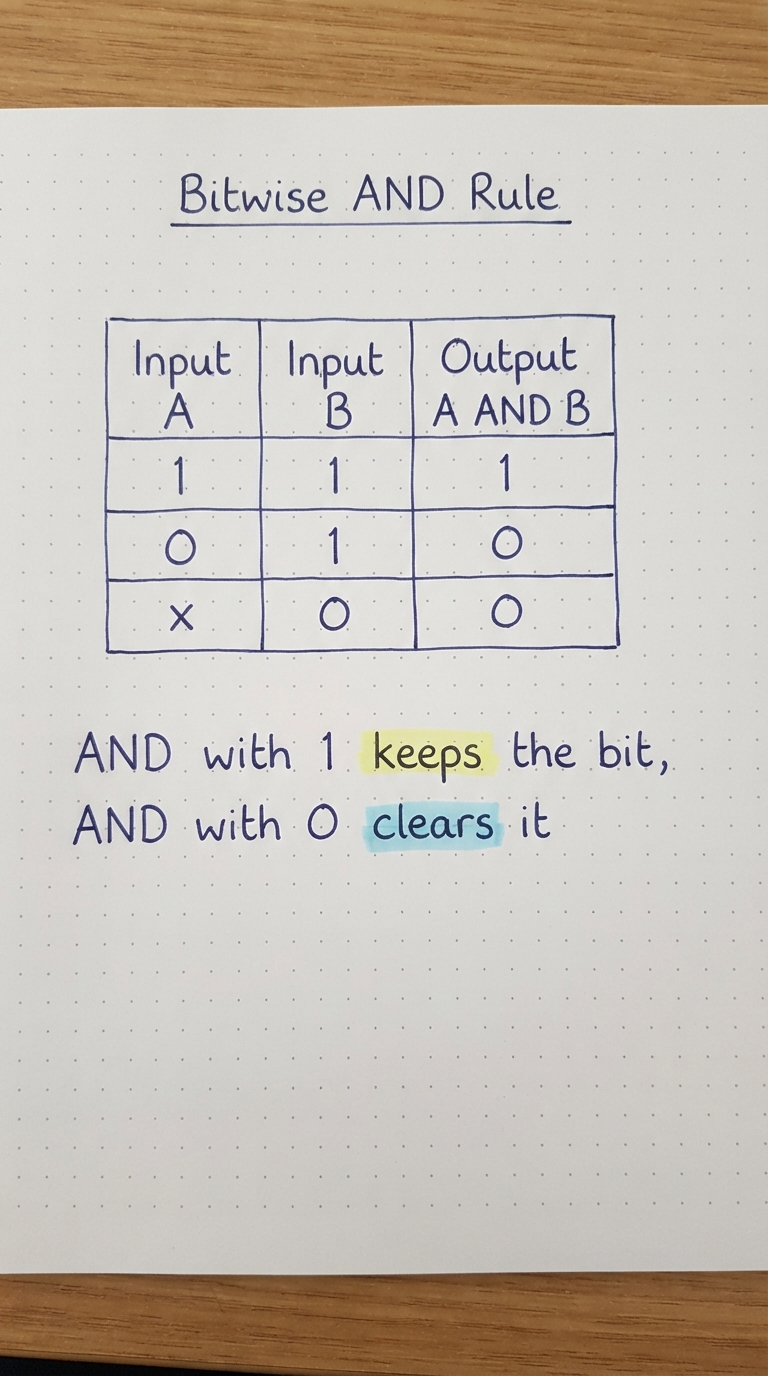 Bitwise AND Rule
Input A Input B Output A AND B
1 1 1
0 1 0
x 0 0
AND with 1 keeps the bit,
AND with 0 clears it